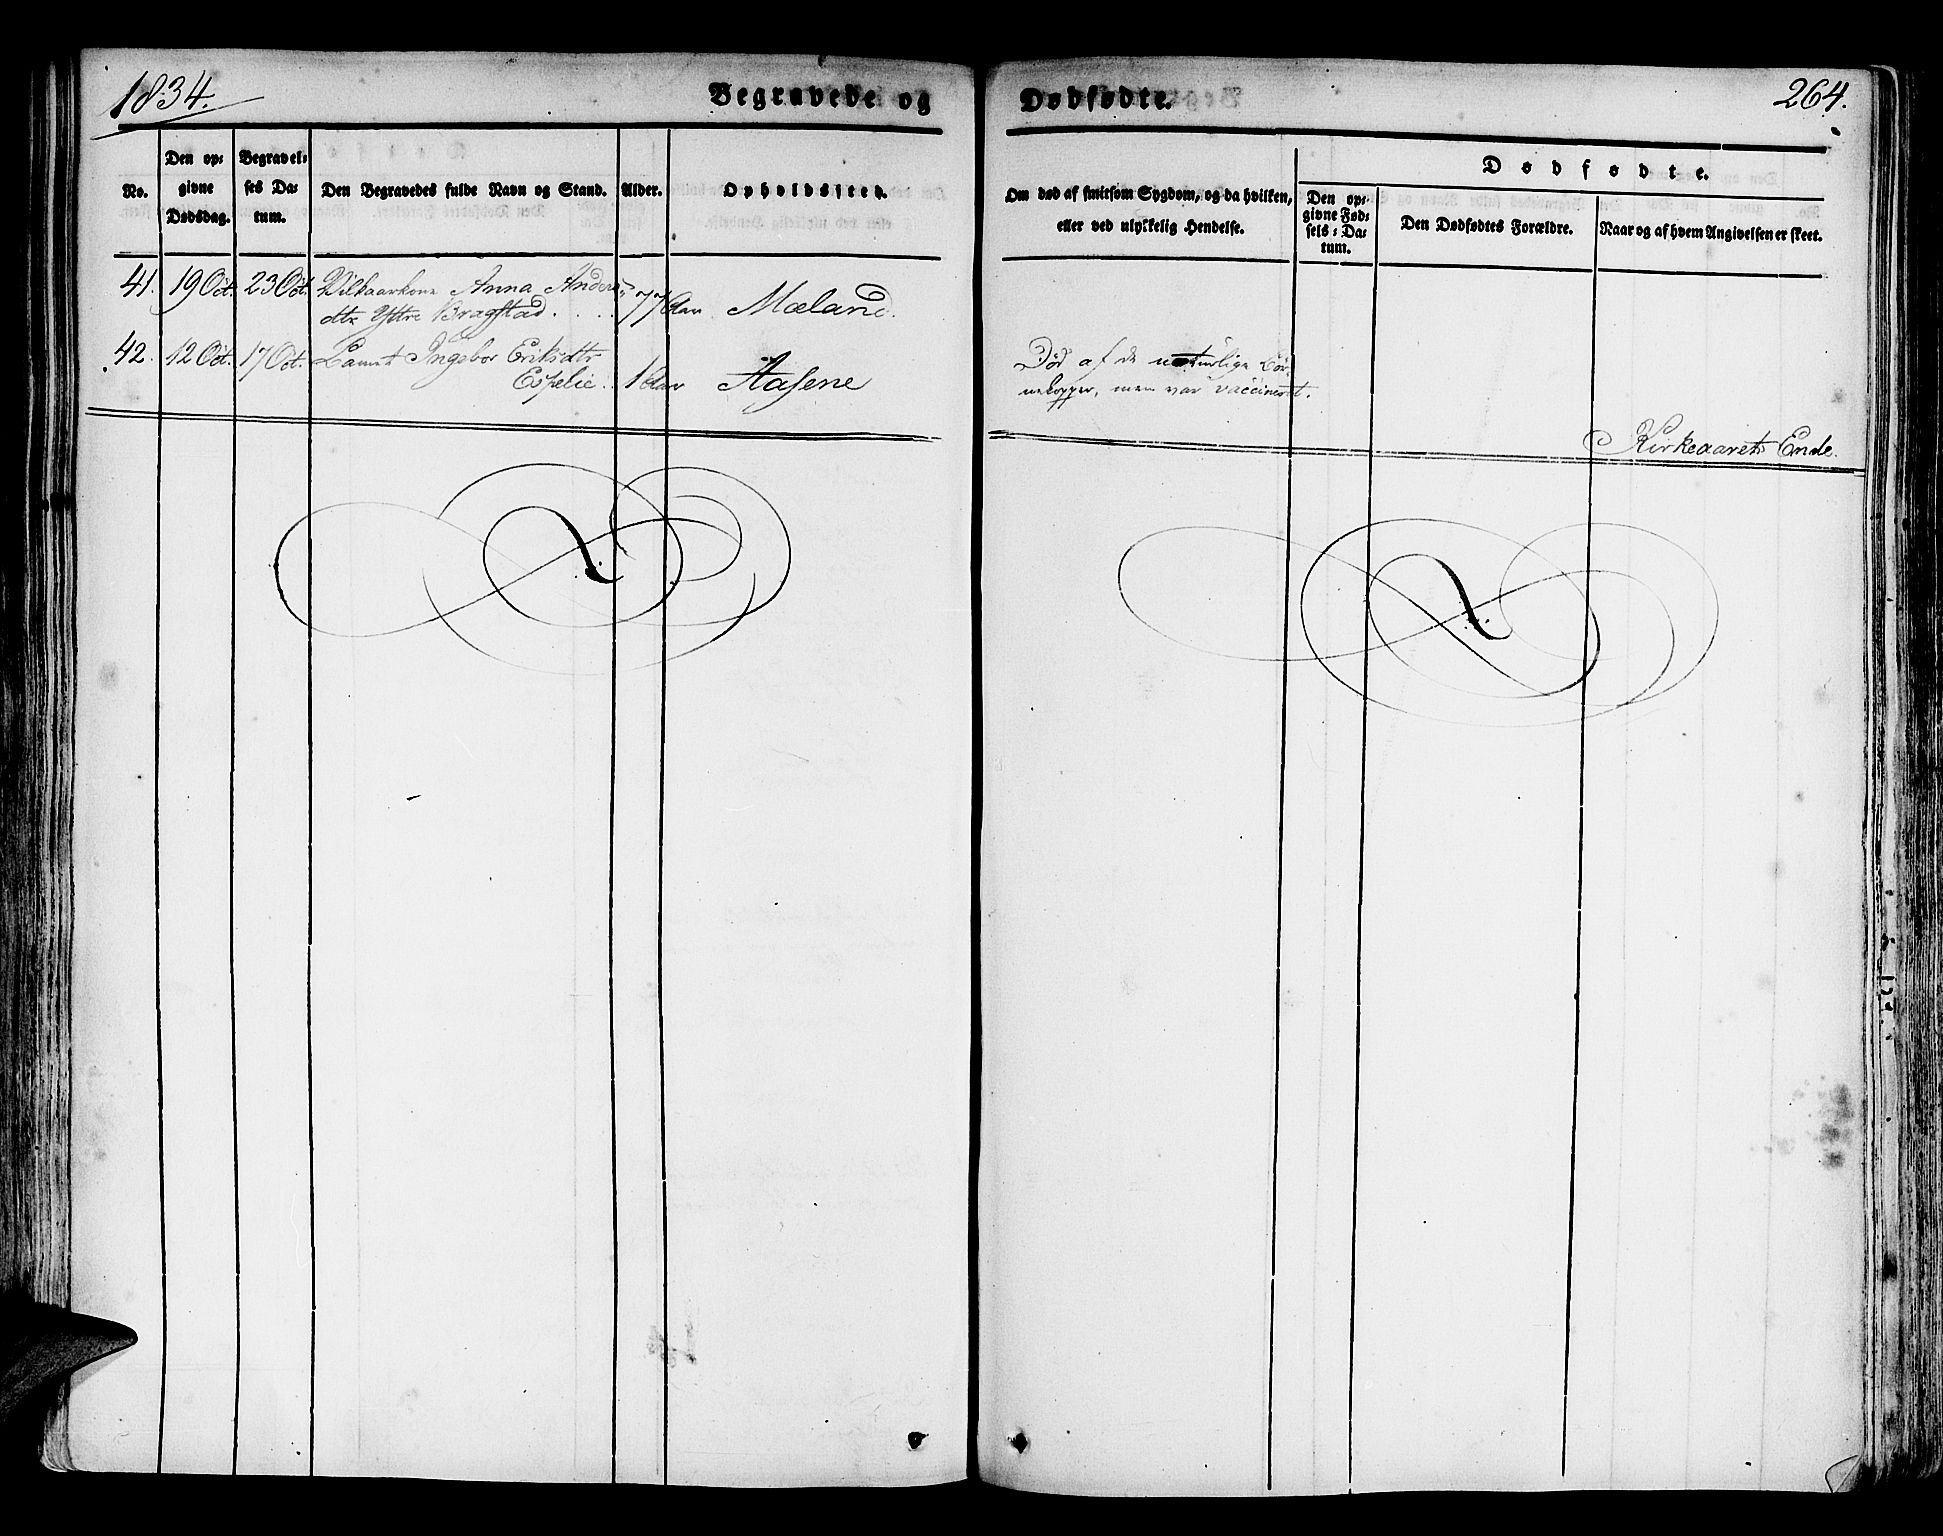 1834.
Begravede og Dødfødte.
264.
No.
Den opgivne Dødsdag.
Begravelses Datum.
Den Begravedes fulde Navn og Stand.
Alder.
Opholdssted.
Om død af smitsom Sygdom, og da hvilken, eller ved ulykkelig Hendelse.
Dødfødte.
Den opgivne Fødsels-Datum.
Den Dødfødtes Forældre.
Naar og af hvem Angivelsen er skeet.
41. 19 Oct. 23 Oct. Vilkaarkone Anna Anders
dtr Yttre Bragstad. . . . 77 Aar Mæland.
42. 12 Oct. 17 Oct. Ingebor Eriksdtr
Espelie. 1 Aar Aasene
Død af de naturlige Bør
nekopper, men var vaccineret.
Kirkeaarets Ende.